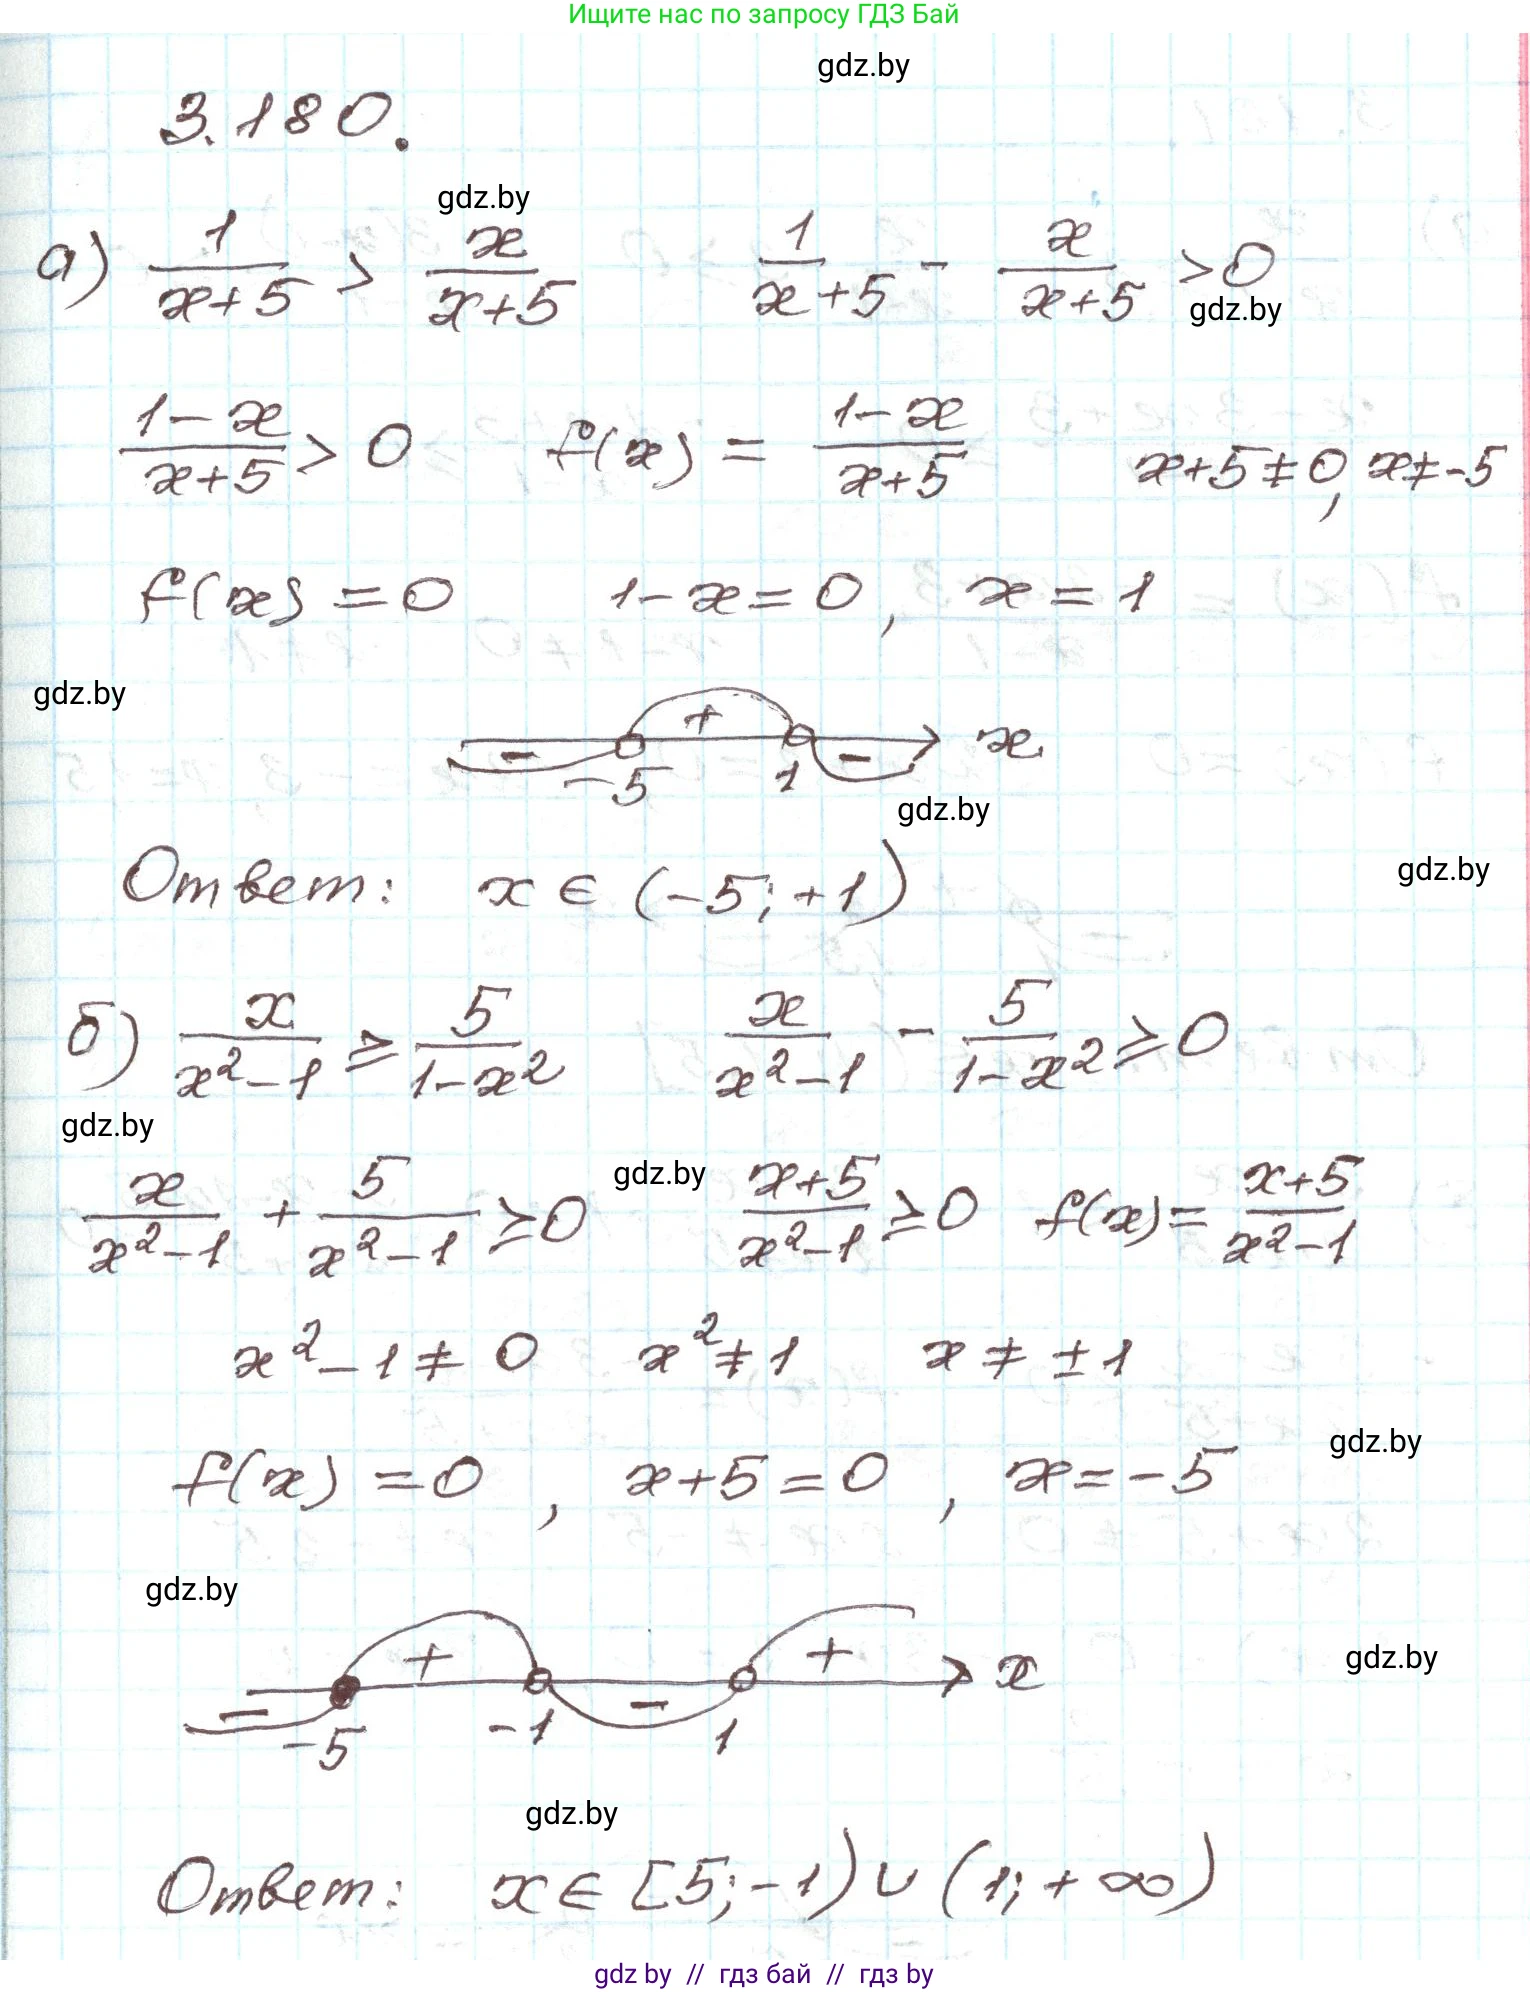 Ищите нас по запросу ГДЗ Бай
gdz.by
3.180.
gdz.by
а) 1/(x+5) > x/(x+5)   1/(x+5) - x/(x+5) > 0
gdz.by
(1-x)/(x+5) > 0   f(x) = (1-x)/(x+5)   x+5≠0, x≠-5
f(x) = 0   1-x=0, x=1
gdz.by
- + - x
-5 1
gdz.by
Ответ: x ∈ (-5; +1)
gdz.by
б) x/(x²-1) ≥ 5/(1-x²)   x/(x²-1) - 5/(1-x²) ≥ 0
gdz.by
gdz.by
x/(x²-1) + 5/(x²-1) ≥ 0   (x+5)/(x²-1) ≥ 0   f(x) = (x+5)/(x²-1)
x²-1≠0   x²≠1   x≠±1
gdz.by
f(x) = 0, x+5=0, x=-5
gdz.by
gdz.by
- + - + x
-5 -1 1
gdz.by
Ответ: x ∈ [5; -1) ∪ (1; +∞)
gdz by // гдз бай // гдз by